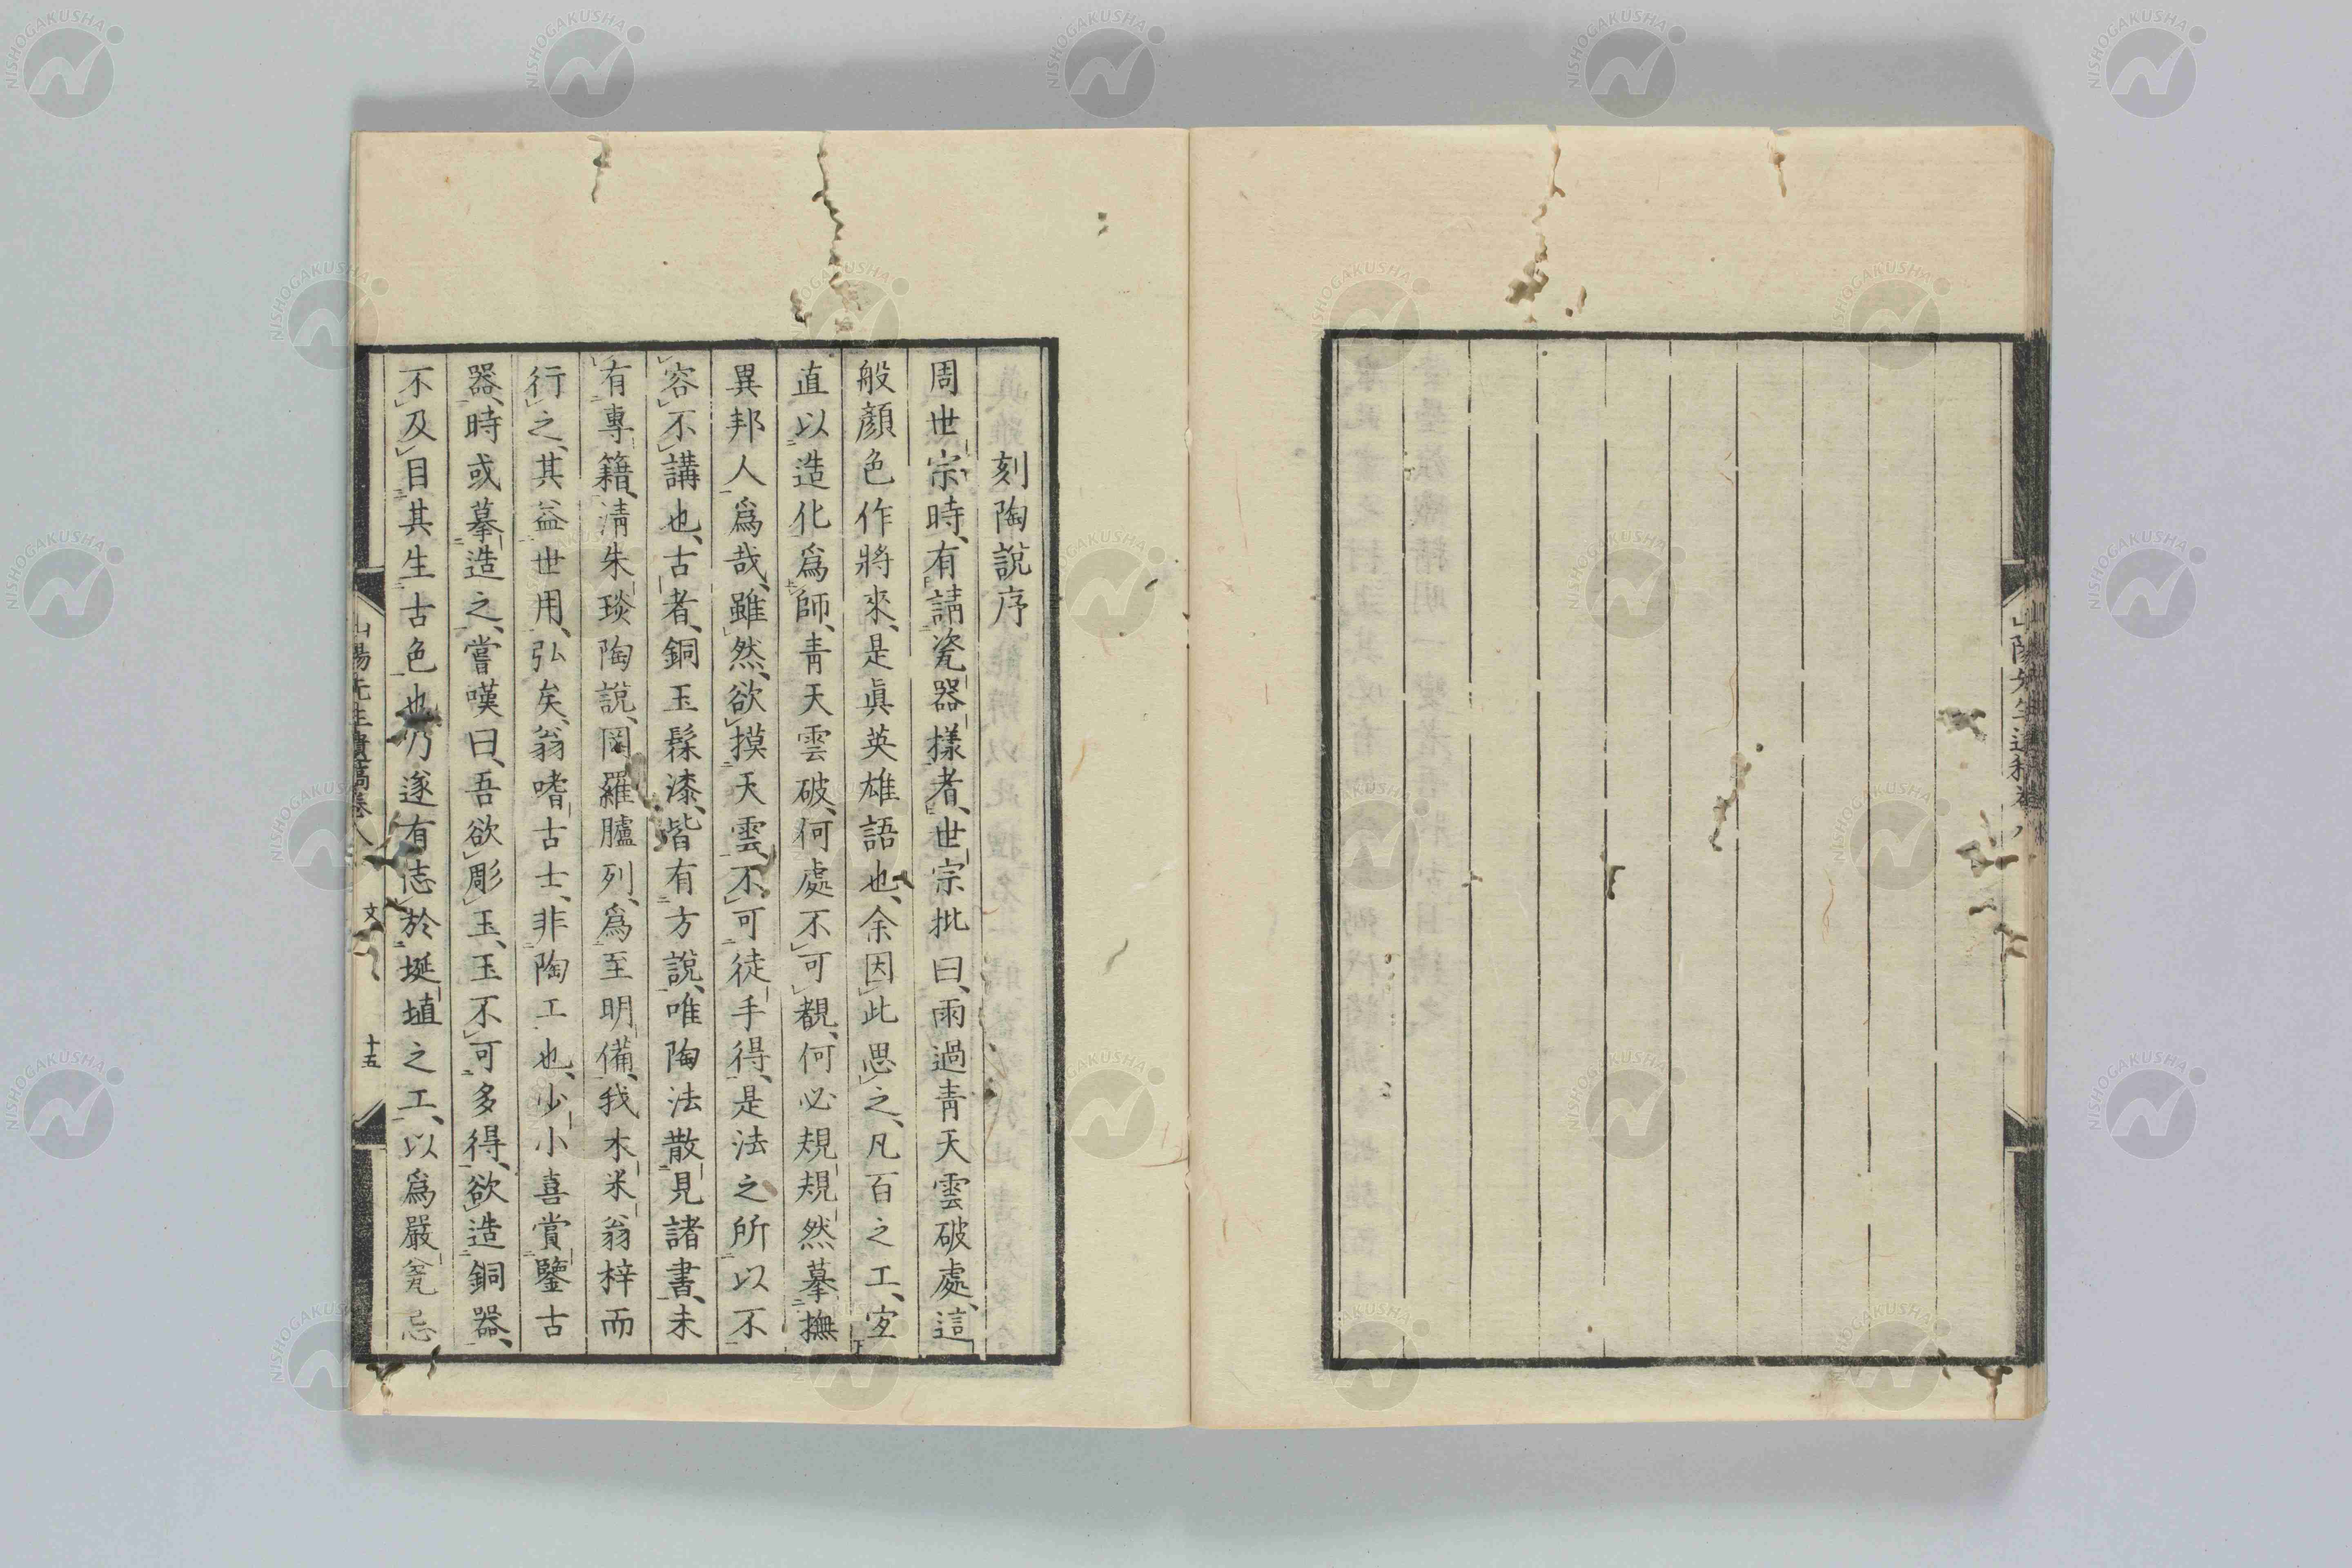 刻陶說序
周世宗時、有請瓷器樣者、世宗批曰、雨過青天雲破處、這
般顏色作將來、是眞英雄語也、余因此思之、凡百之工、宜
直以造化爲師、青天雲破、何處不可覩、何必規規然摹撫
異邦人爲哉、雖然、欲摸天雲、不可徒手得、是法之所以不
容不講也、古者、銅玉髹漆、皆有方說、唯陶法散見諸書、未
有專籍、淸朱琰陶說、罔羅臚列、爲至明備、我木米翁梓而
行之、其益世用、弘矣、翁嗜古士、非陶工也、少小喜賞鑒古
器、時或摹造之、嘗嘆曰、吾欲彫玉、玉不可多得、欲造銅器、
不及目其生古色也、乃遂有志於埏埴之工、以爲嚴
山陽先生遺稿卷八 文 十五
山陽先生遺稿卷八
NISHOGAKUSHA